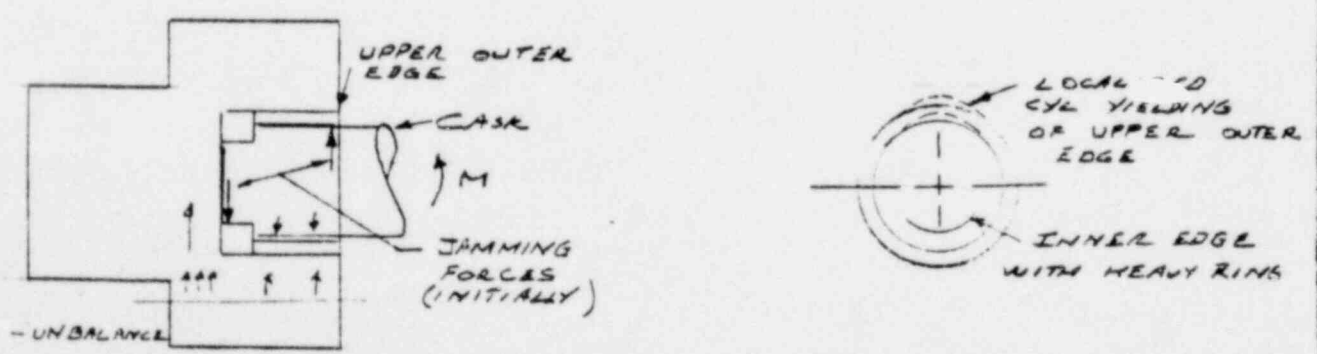 UPPER OUTER
EDGE
CASK
M
JAMMING
FORCES
(INITIALLY)
- UNBALANCE
LOCAL
CYL YIELDING
OF UPPER OUTER
EDGE
INNER EDGE
WITH HEAVY RING